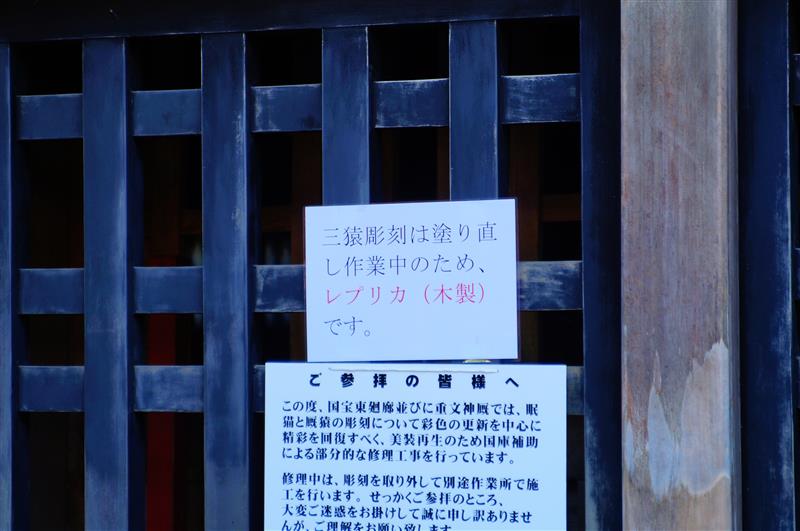 三猿彫刻は塗り直
し作業中のため、
レプリカ（木製）
です。
ご参拝の皆様へ
この度、国宝東廻廊並びに重文神厩では、眠
猫と厩猿の彫刻について彩色の更新を中心に
精彩を回復すべく、美装再生のため国庫補助
による部分的な修理工事を行っています。
修理中は、彫刻を取り外して別途作業所で施
工を行います。せっかくご参拝のところ、
大変ご迷惑をお掛けして誠に申し訳ありませ
んが、ご理解をお願い致します